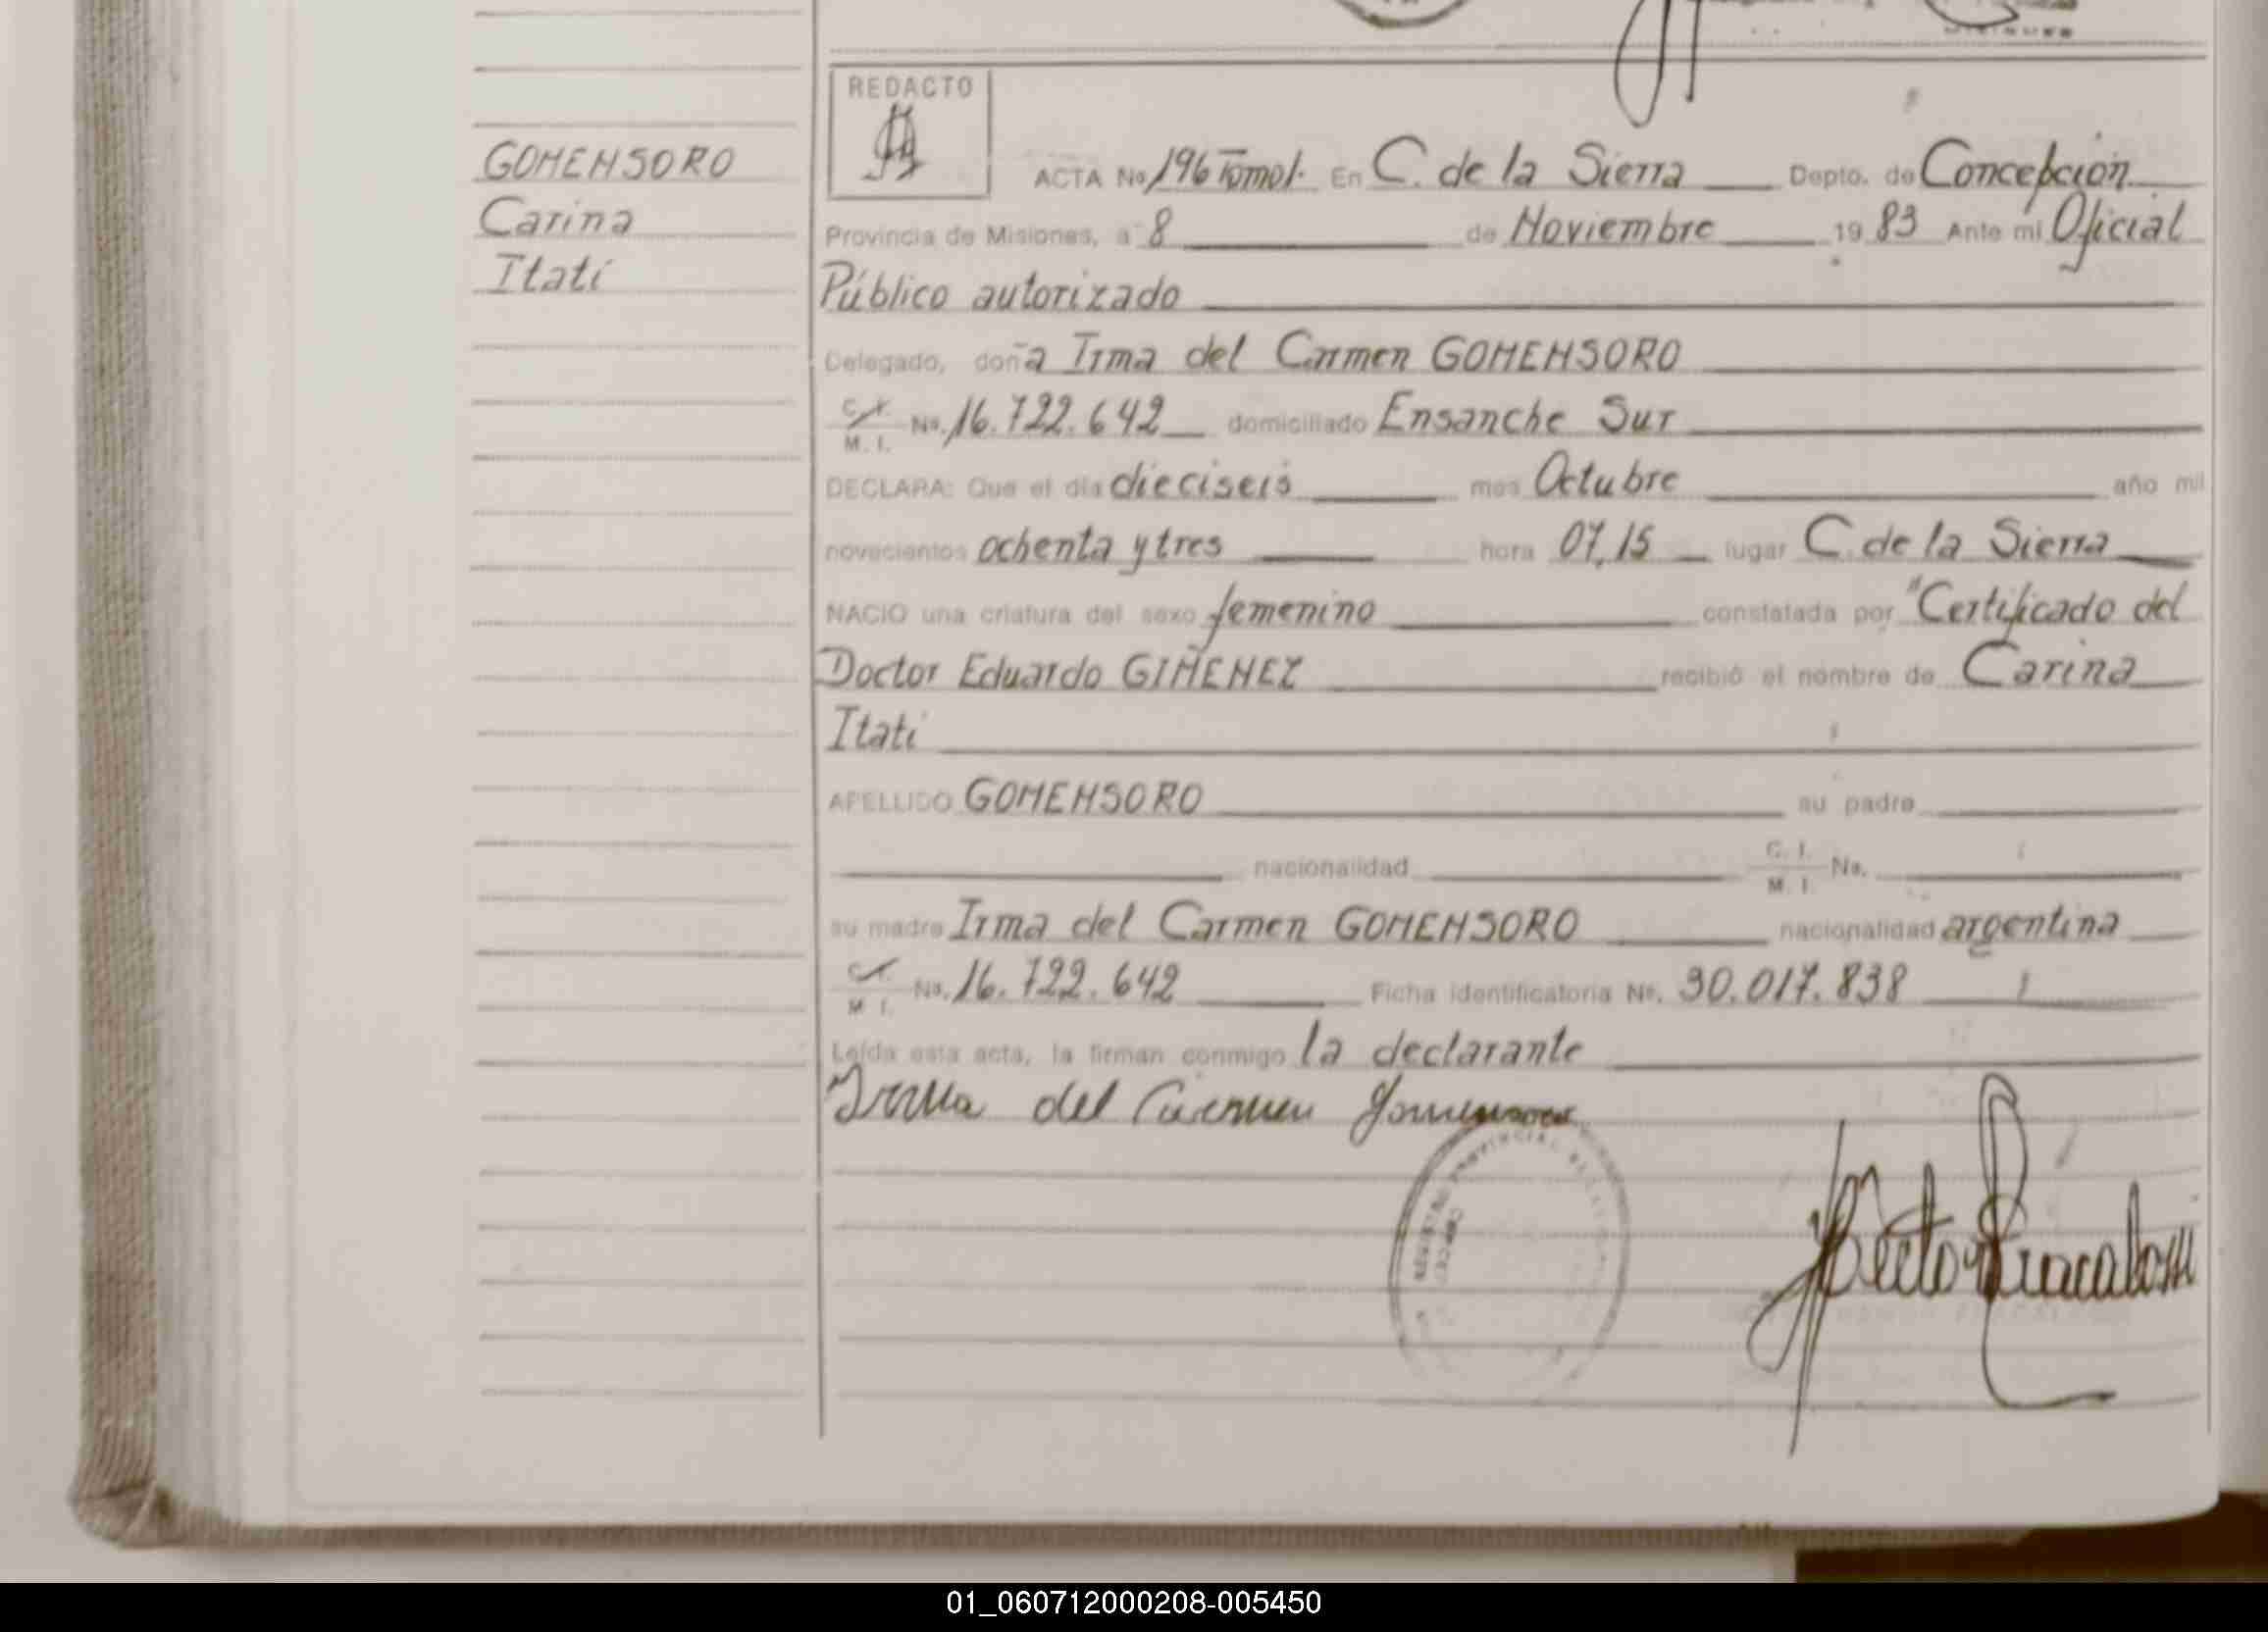 GOMENSORO
Carina
Itatí
REDACTO
ACTA No 196 Tomo I. En C. de la Sierra Depto. de Concepción
Provincia de Misiones, a 8 de Noviembre 1983 Ante mi Oficial
Público autorizado
Delegado, doña Irma del Carmen GOMENSORO
C. I.
M. I. No. 16.722.642 domiciliado Ensanche Sur
DECLARA: Que el día dieciseis mes Octubre año mil
novecientos ochenta y tres hora 07,15 lugar C. de la Sierra
NACIO una criatura del sexo femenino constatada por "Certificado del
Doctor Eduardo GIMENEZ recibió el nombre de Carina
Itatí
APELLIDO GOMENSORO su padre
nacionalidad C. I. M. I. No.
su madre Irma del Carmen GOMENSORO nacionalidad argentina
C. I.
M. I. No. 16.722.642 Ficha identificatoria No. 30.017.838
Leída esta acta, la firman conmigo la declarante
Irma del Carmen Gomensoro
01_060712000208-005450